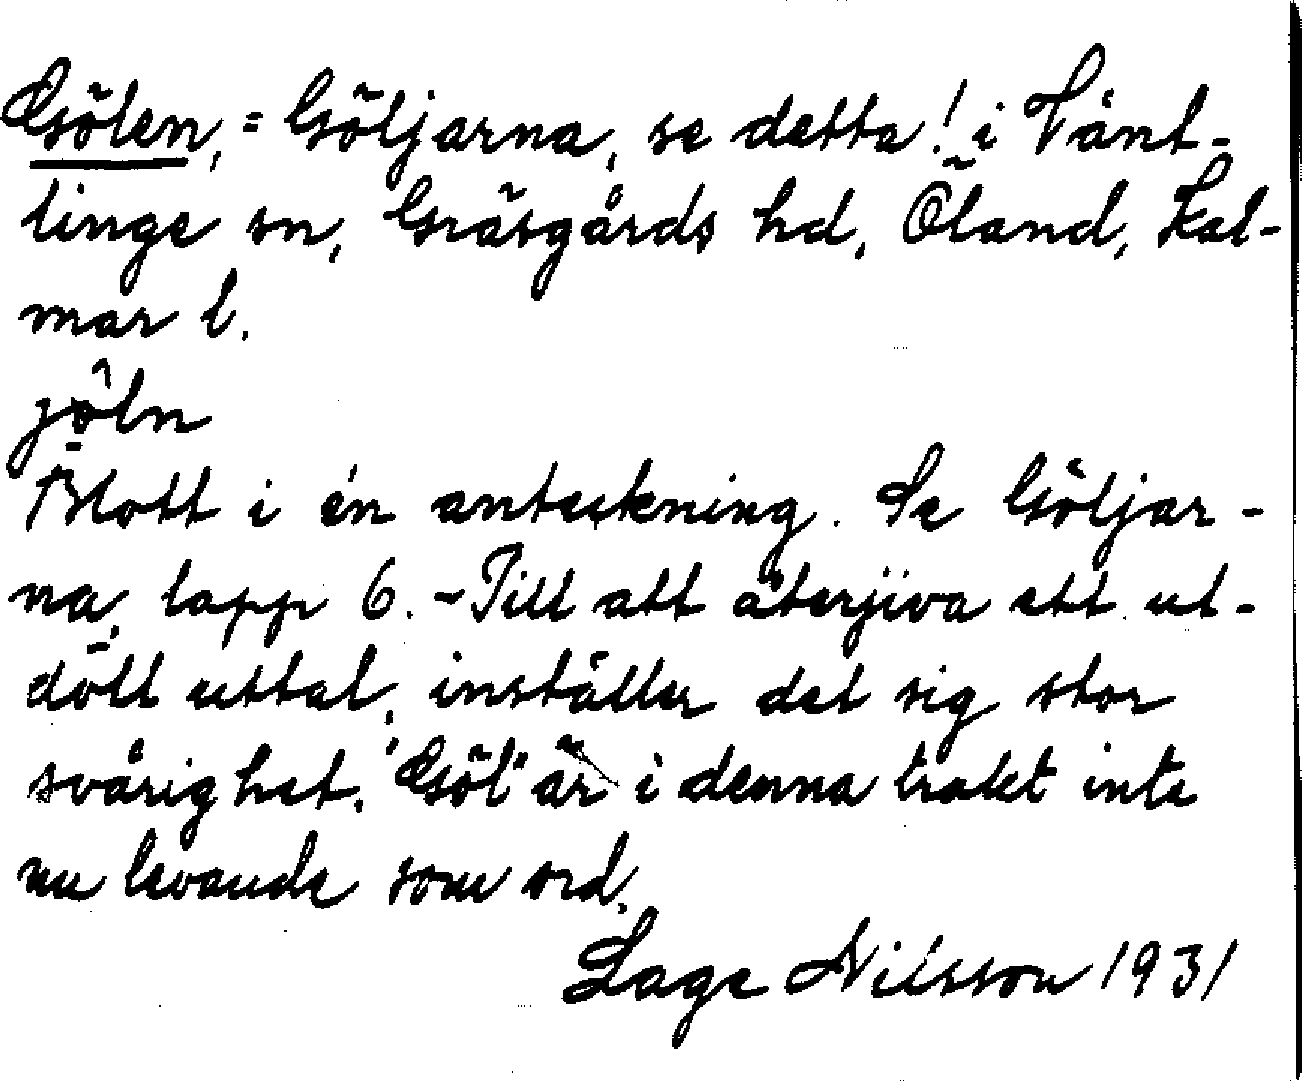 Gölen, = Göljarna, se detta! i Vänt-
linge sn, Gräsgårds hd, Öland, Kal-
mar l.
jöln
Blott i én anteckning. Se Göljar-
na, lapp 6. - Till att återjiva ett ut-
dött uttal, inställer det sig stor
svårighet. "Göl" är i denna trakt inte
nu levande som ord.
Lage Nilsson 1931